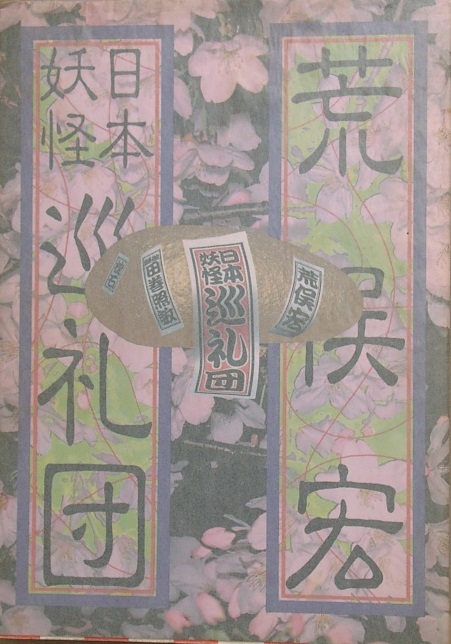 荒俣宏
日本
妖怪
巡礼団
荒俣宏
日本
妖怪
巡礼団
田巻照敏